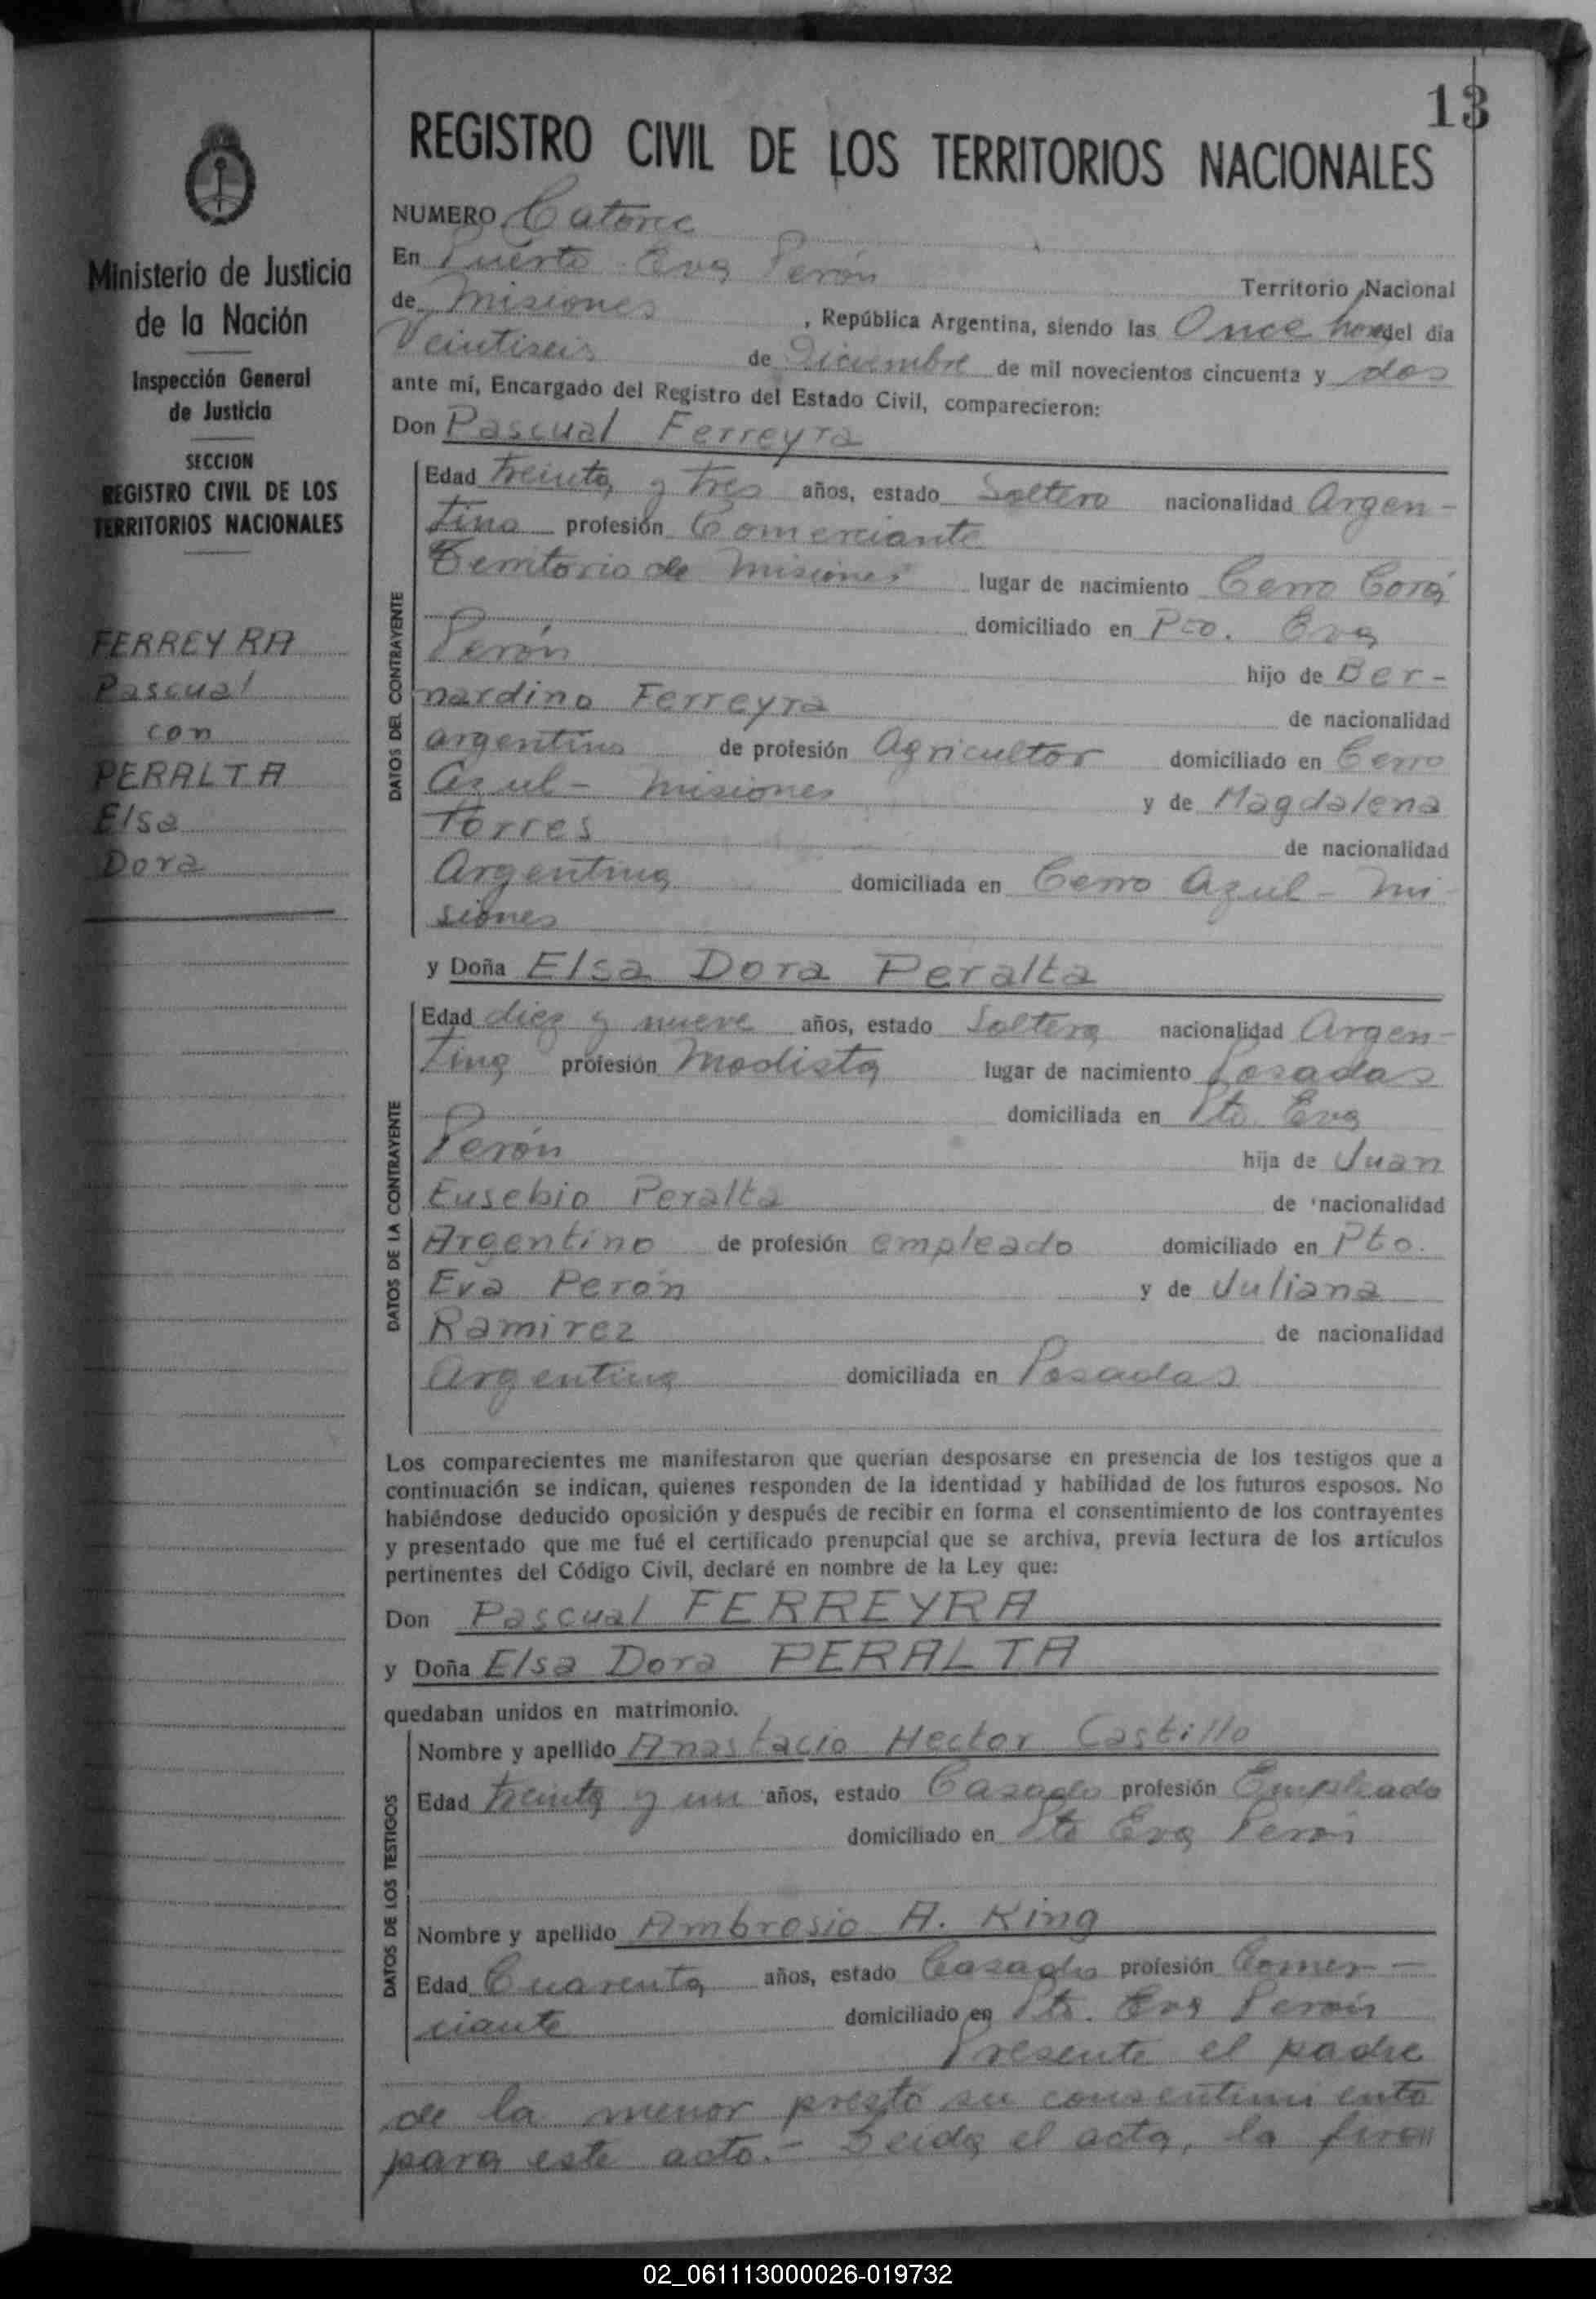 13
REGISTRO CIVIL DE LOS TERRITORIOS NACIONALES
Ministerio de Justicia
de la Nación
Inspección General
de Justicia
SECCION
REGISTRO CIVIL DE LOS
TERRITORIOS NACIONALES
FERREYRA
Pascual
con
PERALTA
Elsa
Dora
NUMERO Catorce
En Puerto Eva Perón Territorio Nacional
de Misiones, República Argentina, siendo las Once horas del día
Veintiseis de Diciembre de mil novecientos cincuenta y dos
ante mí, Encargado del Registro del Estado Civil, comparecieron:
Don Pascual Ferreyra
DATOS DEL CONTRAYENTE
Edad treinta y tres años, estado Soltero nacionalidad Argen-
tino profesión Comerciante
Territorio de Misiones lugar de nacimiento Cerro Corá
domiciliado en Pto. Eva
Perón hijo de Ber-
nardino Ferreyra de nacionalidad
argentino de profesión Agricultor domiciliado en Cerro
Azul - Misiones y de Magdalena
Torres de nacionalidad
Argentina domiciliada en Cerro Azul - Mi
siones
y Doña Elsa Dora Peralta
DATOS DE LA CONTRAYENTE
Edad diez y nueve años, estado Soltera nacionalidad Argen-
tina profesión Modista lugar de nacimiento Posadas
domiciliada en Pto. Eva
Perón hija de Juan
Eusebio Peralta de nacionalidad
Argentino de profesión empleado domiciliado en Pto.
Eva Perón y de Juliana
Ramirez de nacionalidad
Argentina domiciliada en Posadas
Los comparecientes me manifestaron que querían desposarse en presencia de los testigos que a
continuación se indican, quienes responden de la identidad y habilidad de los futuros esposos. No
habiéndose deducido oposición y después de recibir en forma el consentimiento de los contrayentes
y presentado que me fué el certificado prenupcial que se archiva, previa lectura de los artículos
pertinentes del Código Civil, declaré en nombre de la Ley que:
Don Pascual FERREYRA
y Doña Elsa Dora PERALTA
quedaban unidos en matrimonio.
DATOS DE LOS TESTIGOS
Nombre y apellido Anastacio Hector Castillo
Edad treinta y un años, estado Casado profesión Empleado
domiciliado en Pto Eva Perón
Nombre y apellido Ambrosio A. King
Edad Cuarenta años, estado Casado profesión Comer-
ciante domiciliado en Pto. Eva Perón
Presente el padre
de la menor prestó su consentimiento
para este acto.- Leida el acta, la firman
02_061113000026-019732